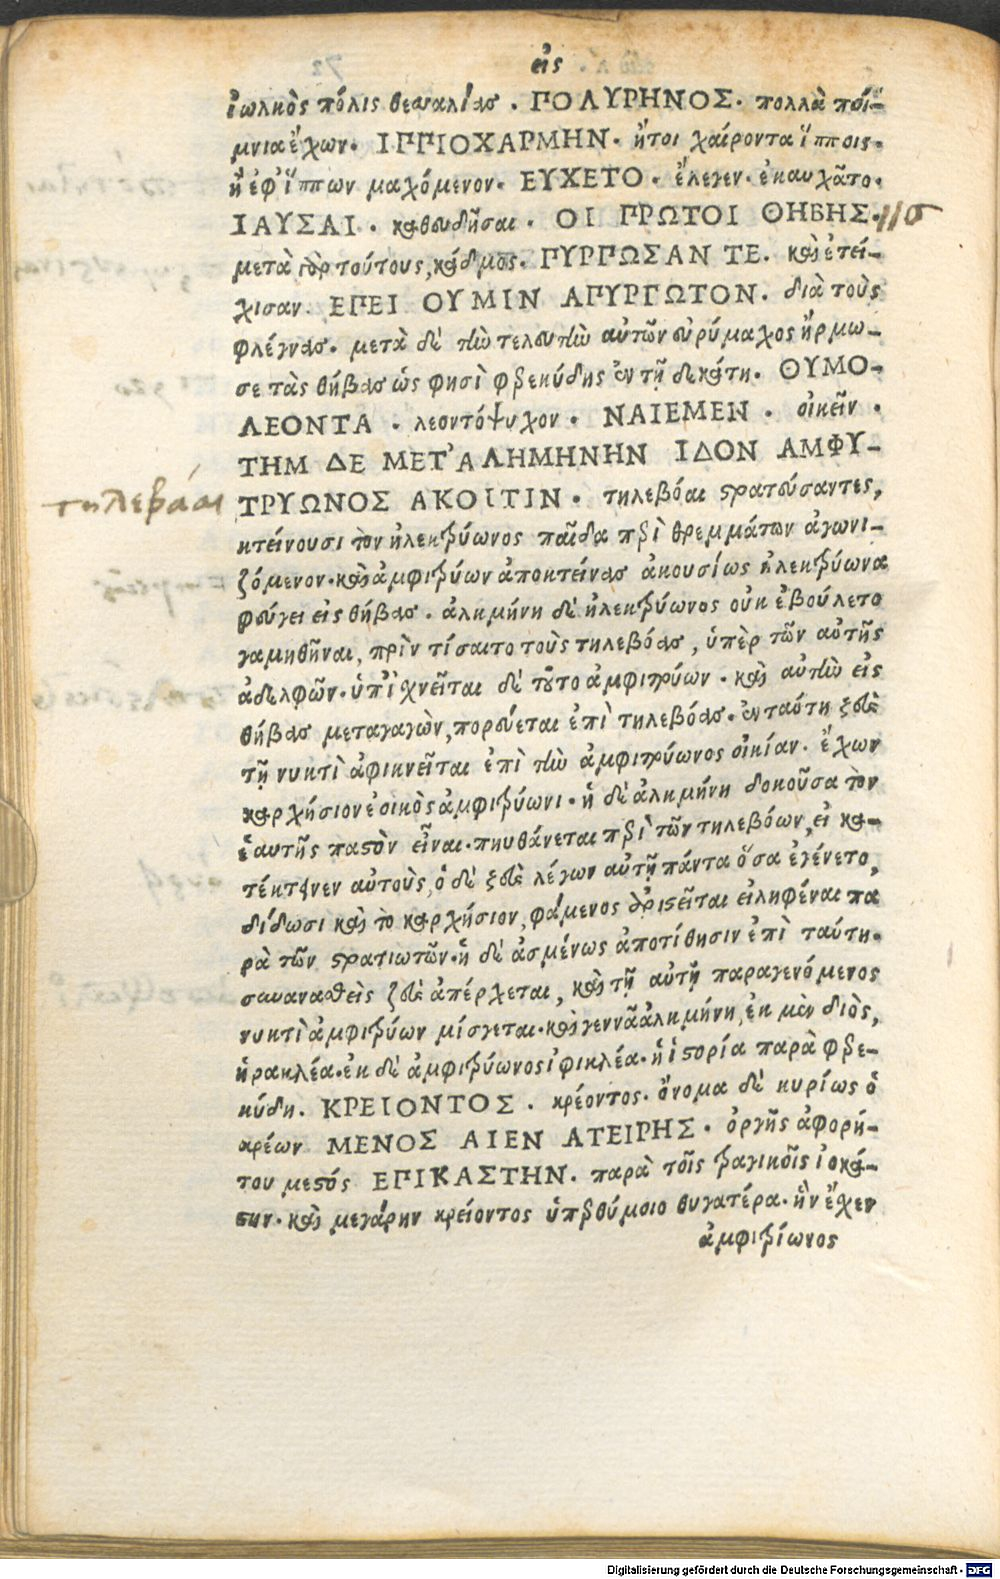 εἰς
ἰωλκὸς πόλις θεσσαλίας. ΠΟΛΥΡΗΝΟΣ. πολλὰ ποί-
μνια ἔχων. ΙΠΠΙΟΧΑΡΜΗΝ. ἤτοι χαίροντα ἵπποις.
ἢ ἐφ' ἵππων μαχόμενον. ΕΥΧΕΤΟ. ἔλεγεν. ἐκαυχᾶτο.
ΙΑΥΣΑΙ. καθευδῆσαι. ΟΙ ΠΡΩΤΟΙ ΘΗΒΗΣ.
μετὰ γὰρ τούτους, κάδμος. ΠΥΡΓΩΣΑΝ ΤΕ. καὶ ἐτεί-
χισαν. ΕΠΕΙ ΟΥ ΜΙΝ ΑΠΥΡΓΩΤΟΝ. διὰ τοὺς
φλέγυας. μετὰ δὲ τὴν τελευτὴν αὐτῶν εὐρύμαχος ἤρμω-
σε τὰς θήβας ὡς φησὶ φερεκύδης ἐν τῇ δεκάτη. ΘΥΜΟ-
ΛΕΟΝΤΑ. λεοντόψυχον. ΝΑΙΕΜΕΝ. οἰκεῖν.
ΤΗΜ ΔΕ ΜΕΤ' ΑΛΗΜΗΝΗΝ ΙΔΟΝ ΑΜΦΥ-
τηλεβόαι ΤΡΥΩΝΟΣ ΑΚΟΙΤΙΝ. τηλεβόαι στρατεύσαντες,
κτείνουσι τὸν ἠλεκτρύωνος παῖδα περὶ θρεμμάτων ἀγωνι-
ζόμενον. καὶ ἀμφιτρύων ἀποκτείνας ἀκουσίως ἠλεκτρύωνα
φεύγει εἰς θήβας. ἀλκμήνη δὲ ἠλεκτρύωνος οὐκ ἐβούλετο
γαμηθῆναι, πρὶν τίσαιτο τοὺς τηλεβόας, ὑπὲρ τῶν αὐτῆς
ἀδελφῶν. ὑπισχνεῖται δὲ τοῦτο ἀμφιτρύων. καὶ αὐτὴν εἰς
θήβας μεταγαγὼν, πορεύεται ἐπὶ τηλεβόας. ἐν ταύτη ζεὺς
τῇ νυκτὶ ἀφικνεῖται ἐπὶ τὴν ἀμφιτρύωνος οἰκίαν. ἔχων
καρχήσιον ἐοικὸς ἀμφιτρύωνι. ἡ δὲ ἀλκμήνη δοκοῦσα τὸν
ἑαυτῆς παστὸν εἶναι. πυνθάνεται περὶ τῶν τηλεβόων, εἰ κα-
τέκτανεν αὐτοὺς, ὁ δὲ ζεὺς λέγων αὐτῇ πάντα ὅσα ἐγένετο,
δίδωσι καὶ τὸ καρχήσιον, φάμενος ἀριστεῖται εἰληφέναι πα
ρὰ τῶν στρατιωτῶν. ἡ δὲ ἀσμένως ἀποτίθησιν ἐπὶ ταύτη.
συναναθεὶς ζεὺς ἀπέρχεται, καὶ τῇ αὐτῇ παραγενόμενος
νυκτὶ ἀμφιτρύων μίσγεται. καὶ γεννᾶ ἀλκμήνη, ἐκ μὲν διὸς,
ἡρακλέα. ἐκ δὲ ἀμφιτρύωνος ἰφικλέα. ἡ ἱστορία παρὰ φερε-
κύδη. ΚΡΕΙΟΝΤΟΣ. κρέοντος. ὄνομα δὲ κυρίως ὁ
κρέων ΜΕΝΟΣ ΑΙΕΝ ΑΤΕΙΡΗΣ. ὀργῆς ἀφορή-
του μεστός ΕΠΙΚΑΣΤΗΝ. παρὰ τοῖς τραγικοῖς ἰοκά-
στην. καὶ μεγάρην κρείοντος ὑπερθύμοιο θυγατέρα. ἣν ἔχεν
ἀμφιτρίωνος
Digitalisierung gefördert durch die Deutsche Forschungsgemeinschaft - DFG